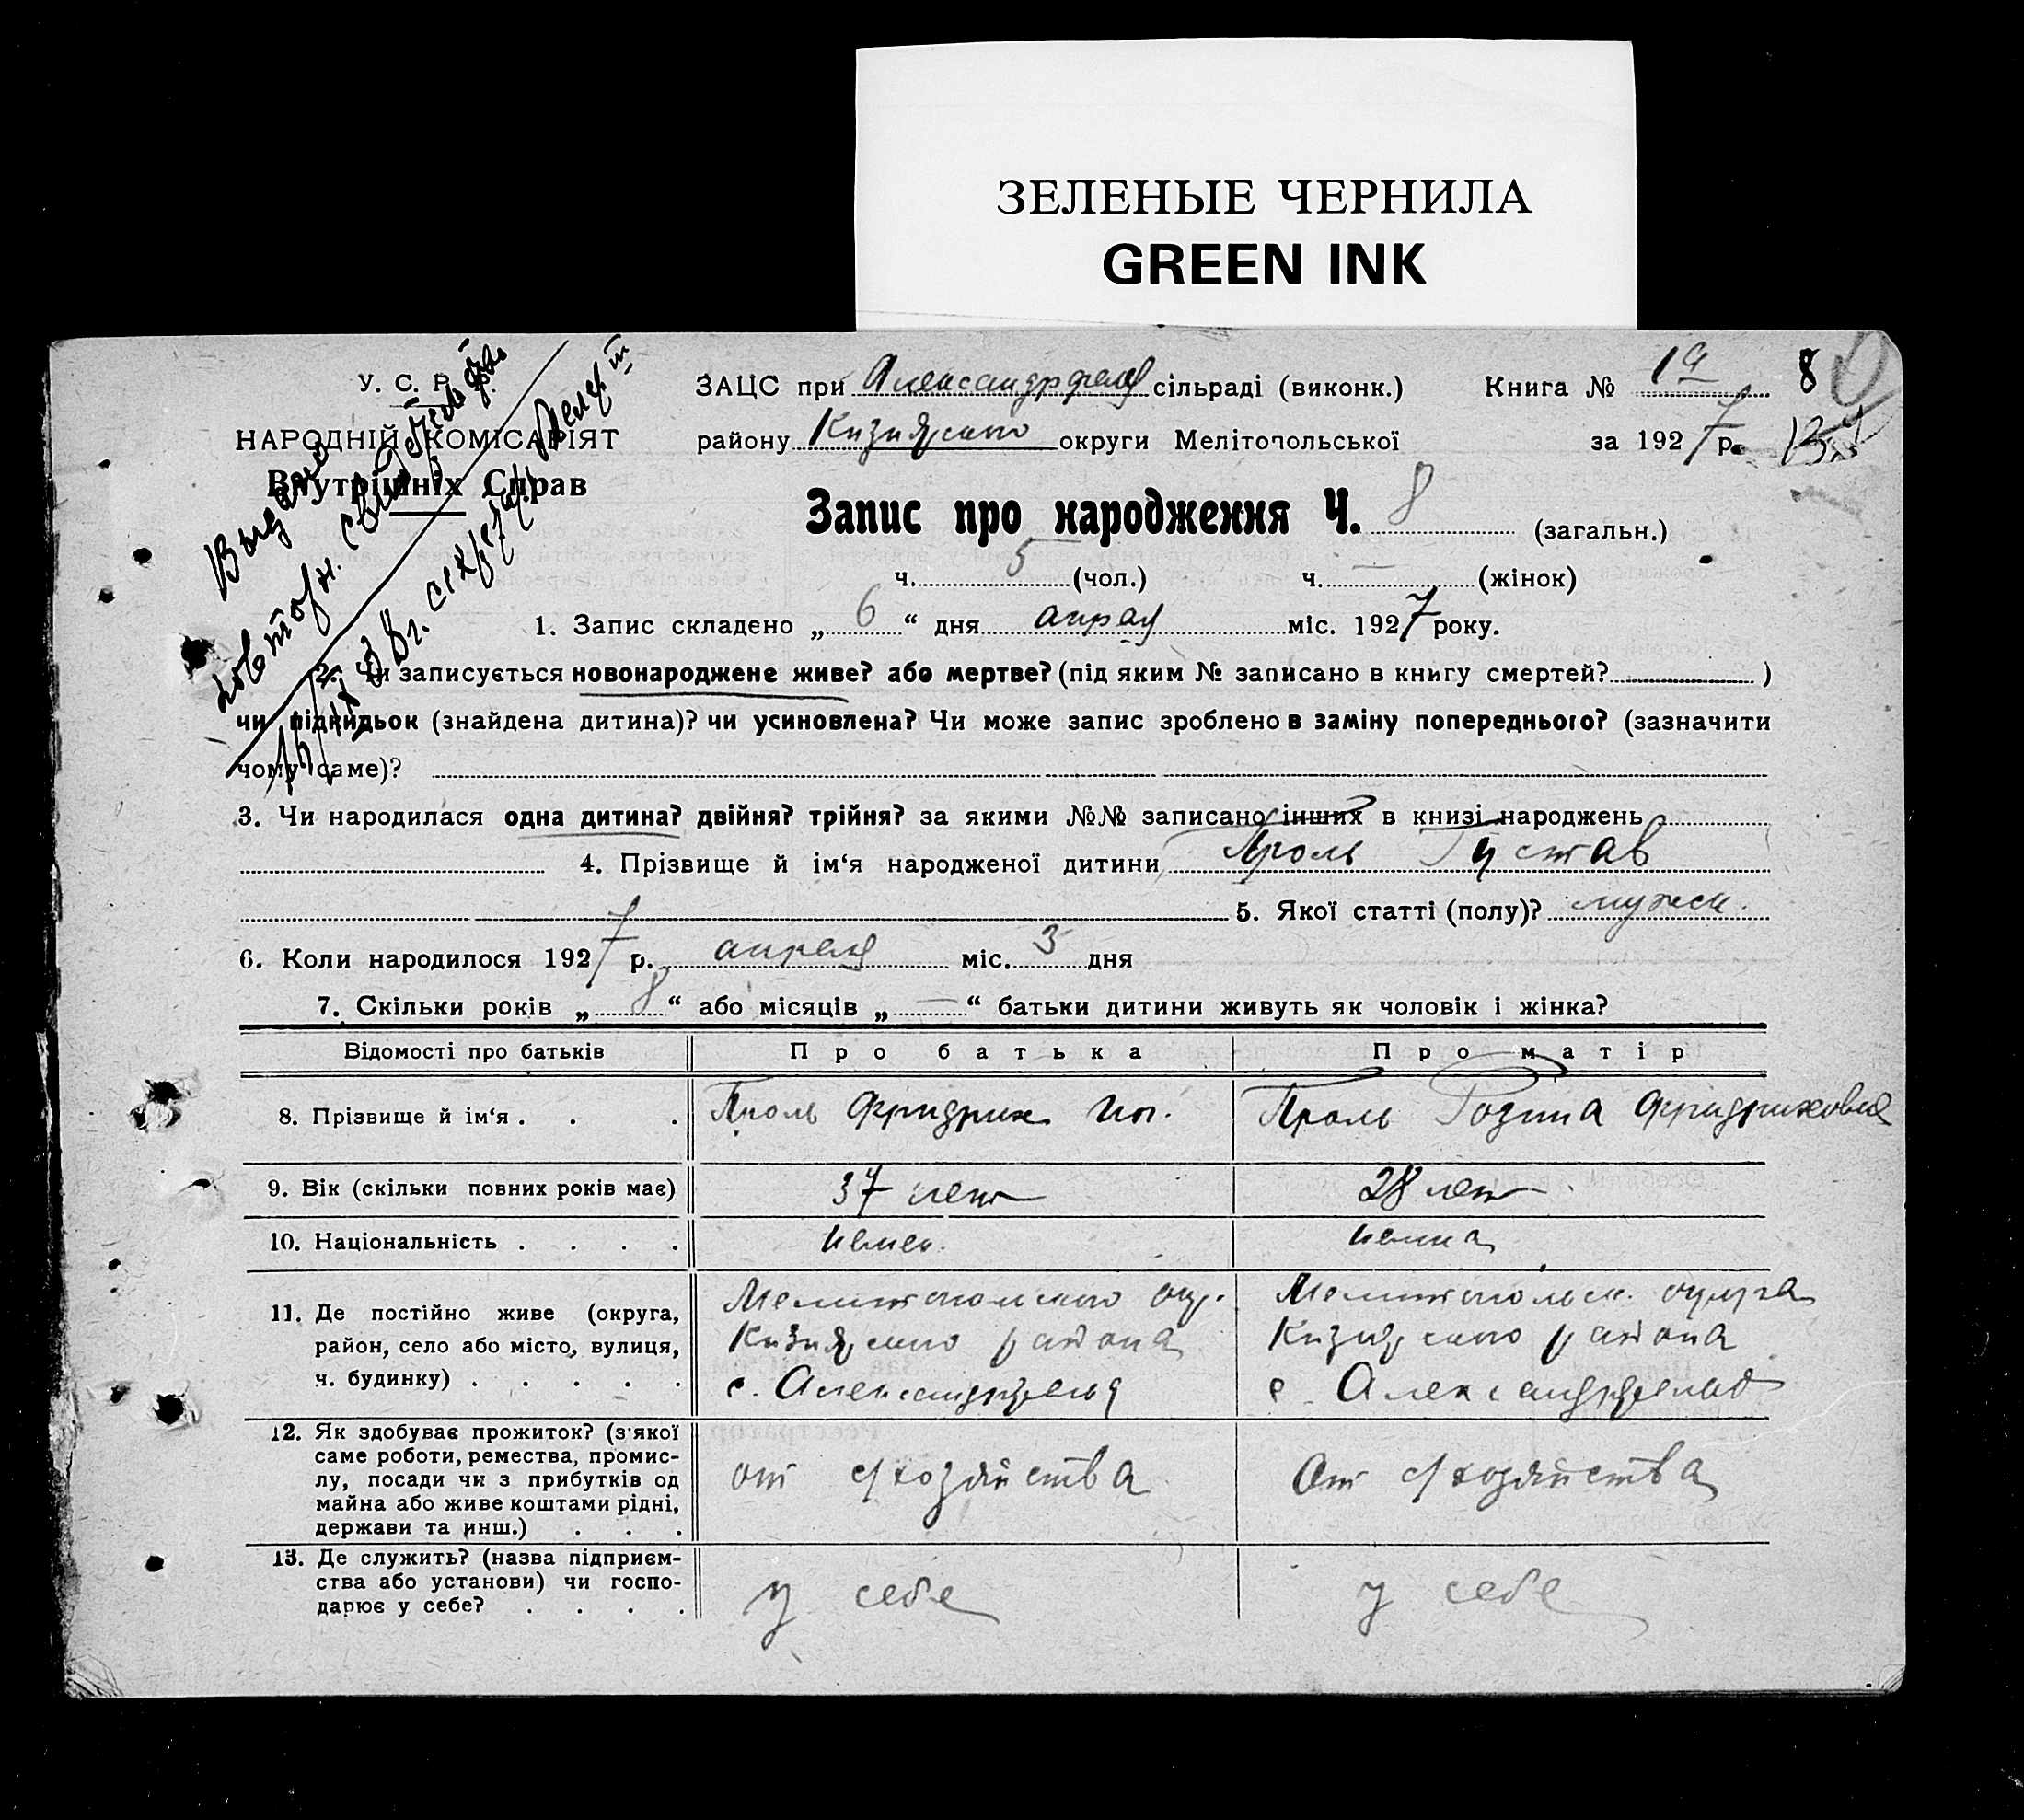 ЗЕЛЕНЫЕ ЧЕРНИЛА
GREEN INK
У. С. Р. Р.
НАРОДНІЙ КОМІСАРІЯТ
Внутрішніх Справ
Выдано
повторн. свид.
ЗАЦС при Александрфельд сільраді (виконк.) Книга № 1а 8
району Кизиярского округи Мелітопольської за 1927 р.
Запис про народження Ч. 8 (загальн.)
ч. 5 (чол.) ч. — (жінок)
1. Запис складено „ 6 “ дня апреля міс. 1927 року.
2. Чи записується новонароджене живе? або мертве? (під яким № записано в книгу смертей? )
чи підкидьок (знайдена дитина)? чи усиновлена? Чи може запис зроблено в заміну попереднього? (зазначити
чому саме)?
3. Чи народилася одна дитина? двійня? трійня? за якими №№ записано інших в книзі народжень
4. Прізвище й ім‘я народженої дитини Проль Густав
5. Якої статті (полу)? мужск.
6. Коли народилося 1927 р. апреля міс. 3 дня
7. Скільки років „ 8 “ або місяців „ — “ батьки дитини живуть як чоловік і жінка?
Відомості про батьків Про батька Про матір
8. Прізвище й ім‘я . . . Проль Фридрих Ив. Проль Розина Фридриховна
9. Вік (скільки повних років має) 37 лет 28 лет
10. Національність . . . . немец. немка
11. Де постійно живе (округа, Мелитопольского окр. Мелитопольск. округа
район, село або місто, вулиця, Кизиярского района Кизиярского района
ч. будинку) . . . . . с. Александрфельд с. Александрфельд
12. Як здобуває прожиток? (з якої
саме роботи, ремества, промис-
лу, посади чи з прибутків од от с/хозяйства От с/хозяйства
майна або живе коштами рідні,
держави та инш.) . . .
13. Де служить? (назва підприєм-
ства або установи) чи госпо- у себе у себе
дарює у себе? . . . .